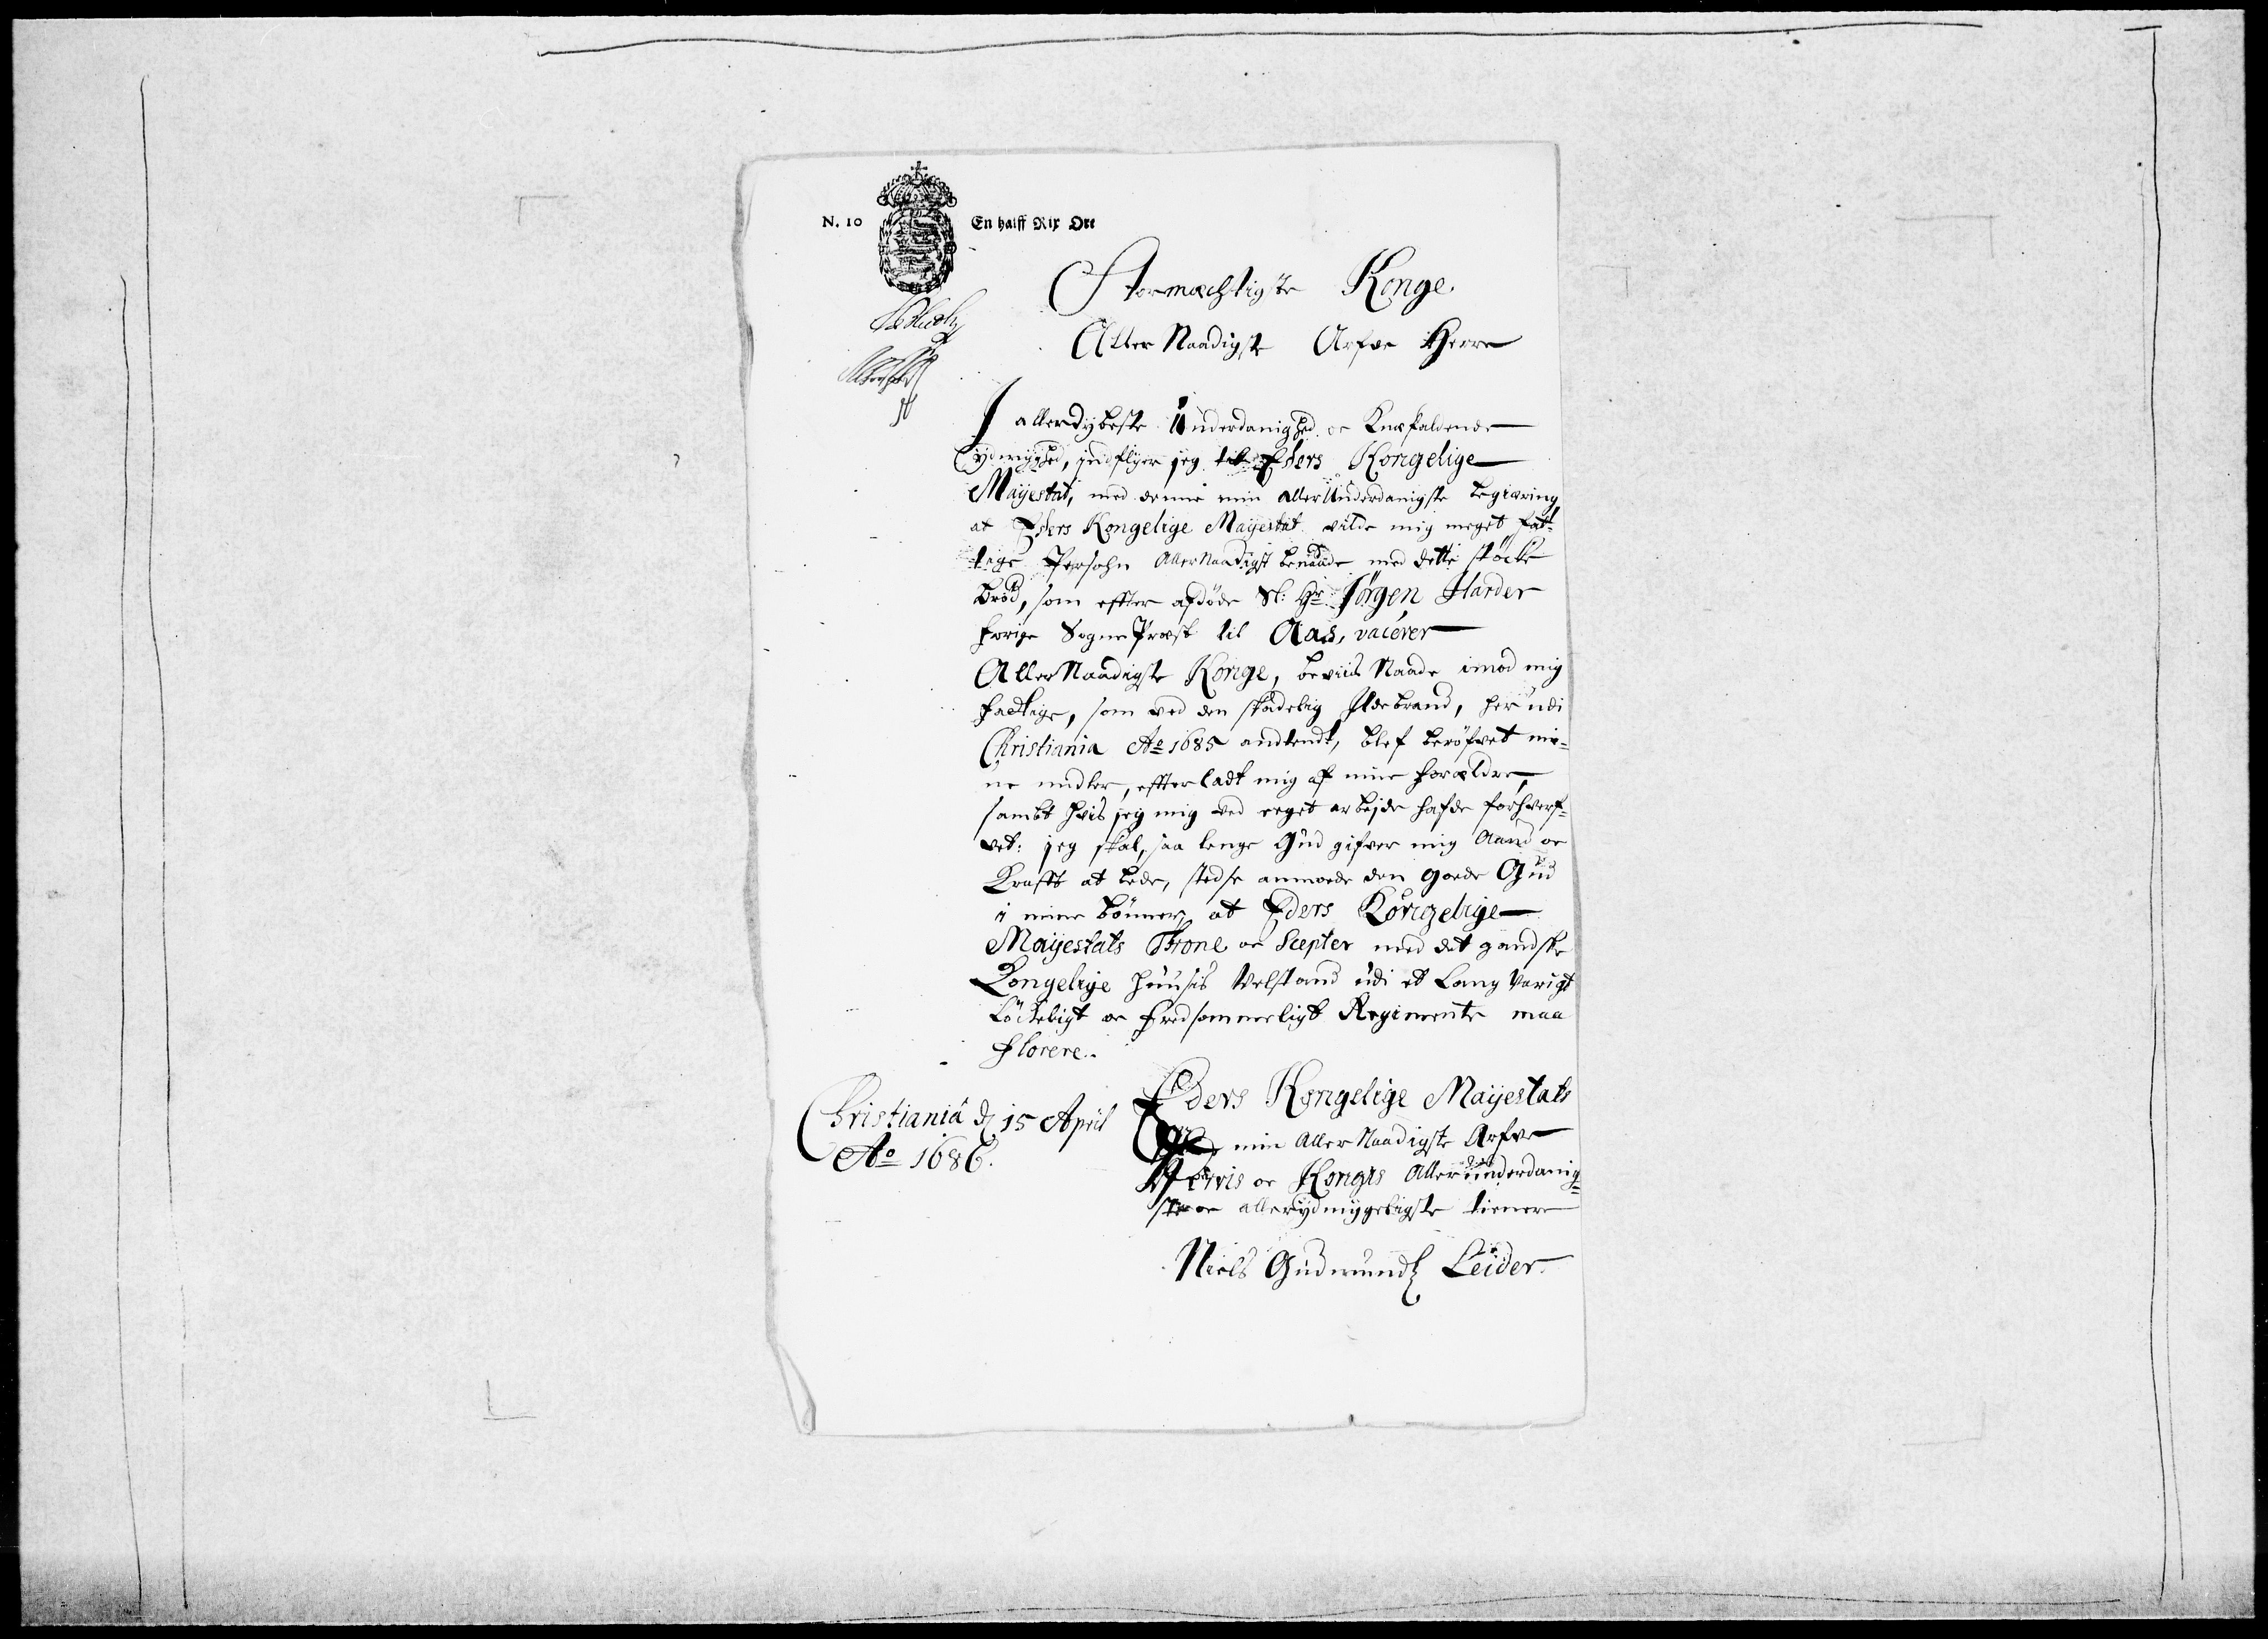 N. 10 En halff Rix Ort
Stormæchtigste Konge.
Aller Naadigste Arfve Herre
I allerdybeste Underdanighed oc Knæfaldende
ydmyghed, indflyer jeg til Eders Kongelige
Mayestat, med denne min aller Underdanigste begiæring,
at Eders Kongelige Mayestat vilde mig meget fat-
tige Persohn Aller Naadigst benaade med dette støcke
brød, som effter afdøde Sl: Hr Jørgen Harder
forige Sogne Præst til Aas, vacerer
Aller Naadigste Konge, beviis Naade imod mig
fattige, som ved den skadelig Ildebrand, her udi
Christiania Ao 1685 andtendt, blef berøfvet mi-
ne midler, effterladt mig af mine forældre,
sambt hvis jeg mig ved eeget arbejde hafde forhverf-
vet: jeg skal, saa lenge Gud gifver mig Aand oc
Krafft at bede, stedse anmode den goede Gud
i mine bønner, at Eders Kongelige
Mayestats Throne oc Scepter med det gandske
Kongelige Huusis Velstand udi et Lang Varigt
Løckeligt oc fredsommeligt Regimente maa
florere.
Christiania d 15 April
Ao 1686.
Eders Kongelige Mayestats
min Aller Naadigste Arfve
Herris oc Kongis Aller underdanig-
ste oc allerydmygeligste tienere
Niels Gudmundz Leider.